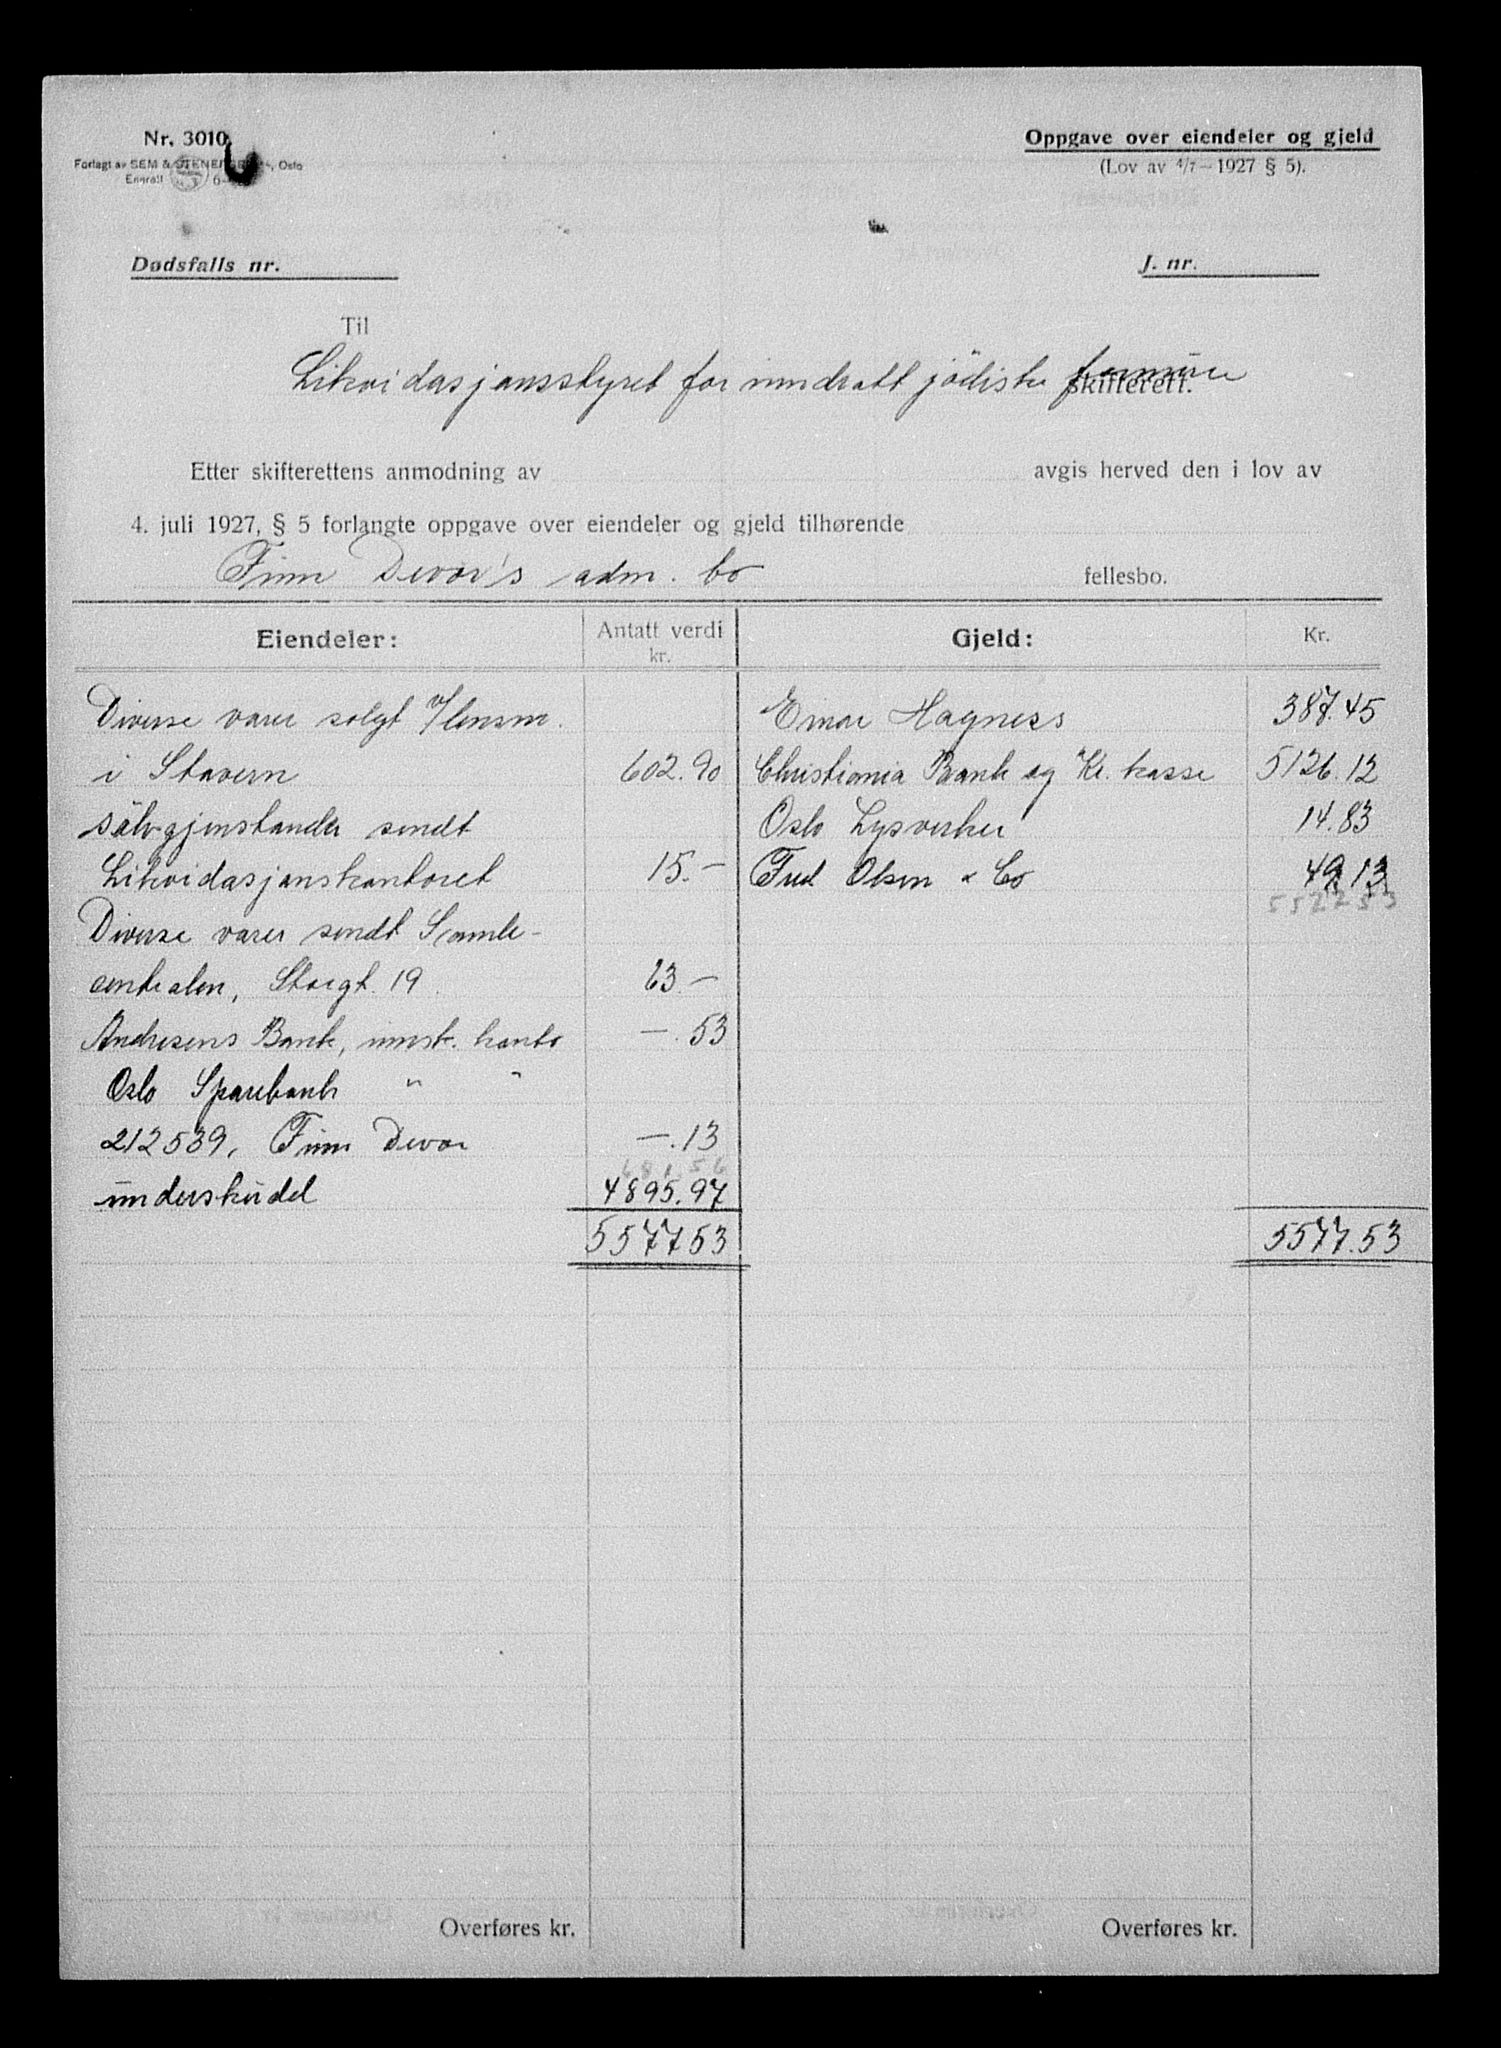 Nr. 3010
Oppgave over eiendeler og gjeld
Forlagt av SEM & STENERSEN, Oslo
(Lov av 4/7 — 1927 § 5).
Enerett
Dødsfalls nr.
J. nr.
Til
Likvidasjonsstyret for inndratt jödiske formüer
skifterett.
Etter skifterettens anmodning av avgis herved den i lov av
4. juli 1927, § 5 forlangte oppgave over eiendeler og gjeld tilhørende
Finn Devor's adm. bo fellesbo.
Eiendeler: Antatt verdi kr. Gjeld: Kr.
Diverse varer solgt v/lensm. Einar Hagness 387.45
i Stavern 602.90 Christiania Bank og Kr. kasse 5126.12
sölvgjenstander sendt Oslo Lysverker 14.83
Likvidasjonskontoret 15.— Fred Olsen & Co 49.13
552253
Diverse varer sendt Samle-
centralen, Storgt. 19. 63.—
Andresens Bank, innsk. konto —.53
Oslo Sparebank " "
212539, Finn Devor —.13
681.56
ünderskudd 4895.97
5577 53 5577.53
Overføres kr. Overføres kr.